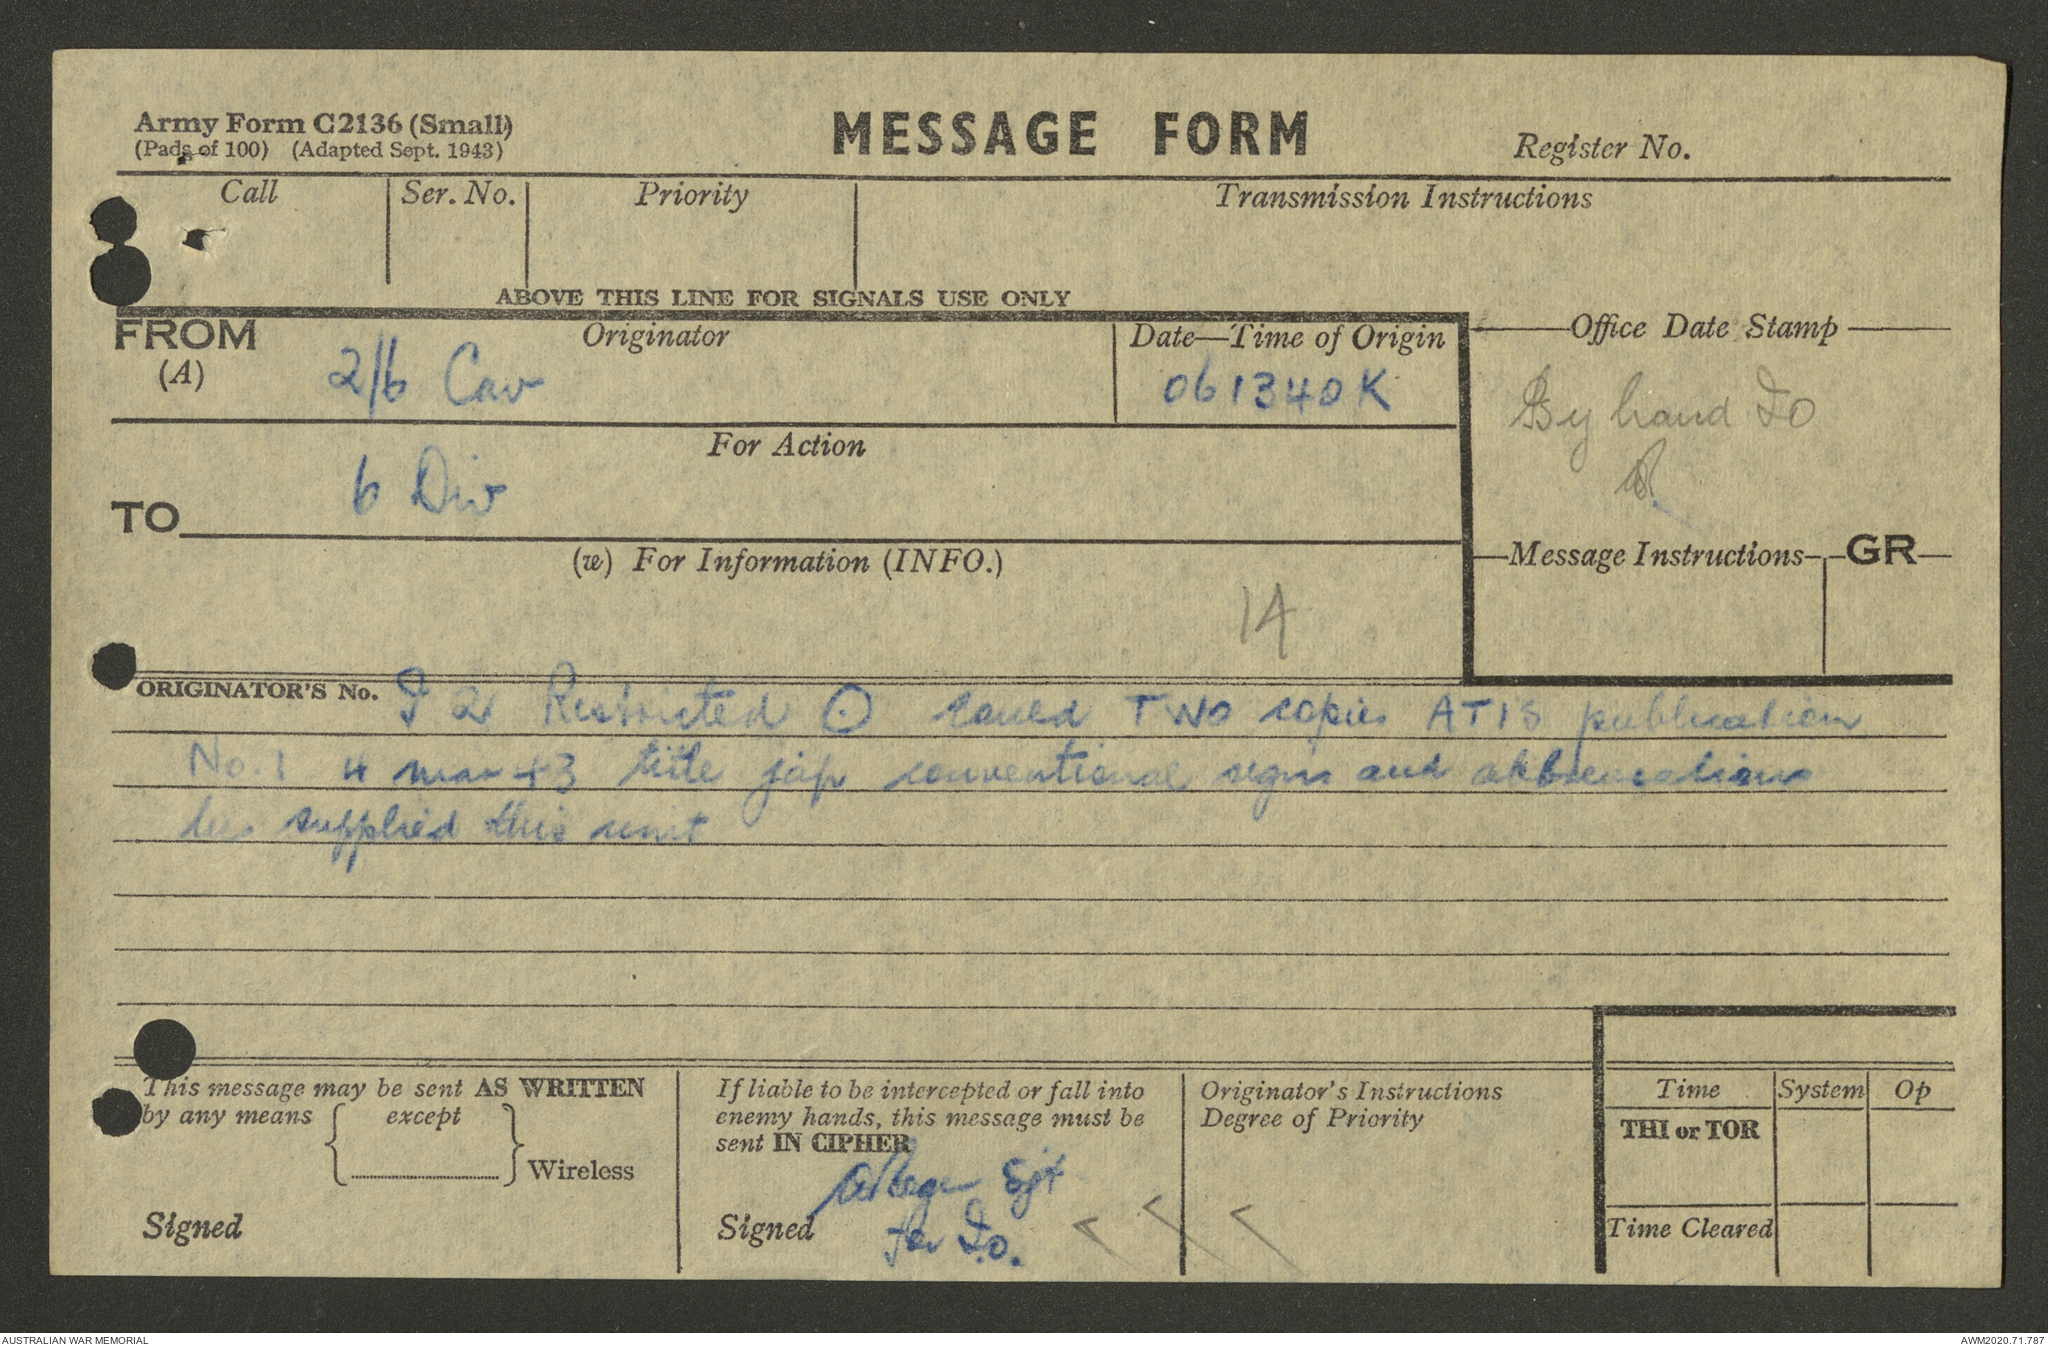 Army Form C2136 (Small)
(Pads of 100) (Adapted Sept. 1943)
MESSAGE FORM
Register No.
Call
Ser. No.
Priority
Transmission Instructions
ABOVE THIS LINE FOR SIGNALS USE ONLY
FROM
(A)
Originator
2/6 Cav
Date—Time of Origin
061340K
Office Date Stamp
By hand IO
For Action
TO
6 Div
(w) For Information (INFO.)
14
Message Instructions
GR
ORIGINATOR'S No. I 2 Restricted ⊙ could TWO copies ATIS publication
No. 1 4 mar 43 title jap conventional signs and abbreviations
be supplied this unit
This message may be sent AS WRITTEN
by any means { except } Wireless
Signed
If liable to be intercepted or fall into
enemy hands, this message must be
sent IN CIPHER
Sjt
Signed for I.O.
Originator's Instructions
Degree of Priority
Time
System
Op
THI or TOR
Time Cleared
AUSTRALIAN WAR MEMORIAL
AWM2020.71.787